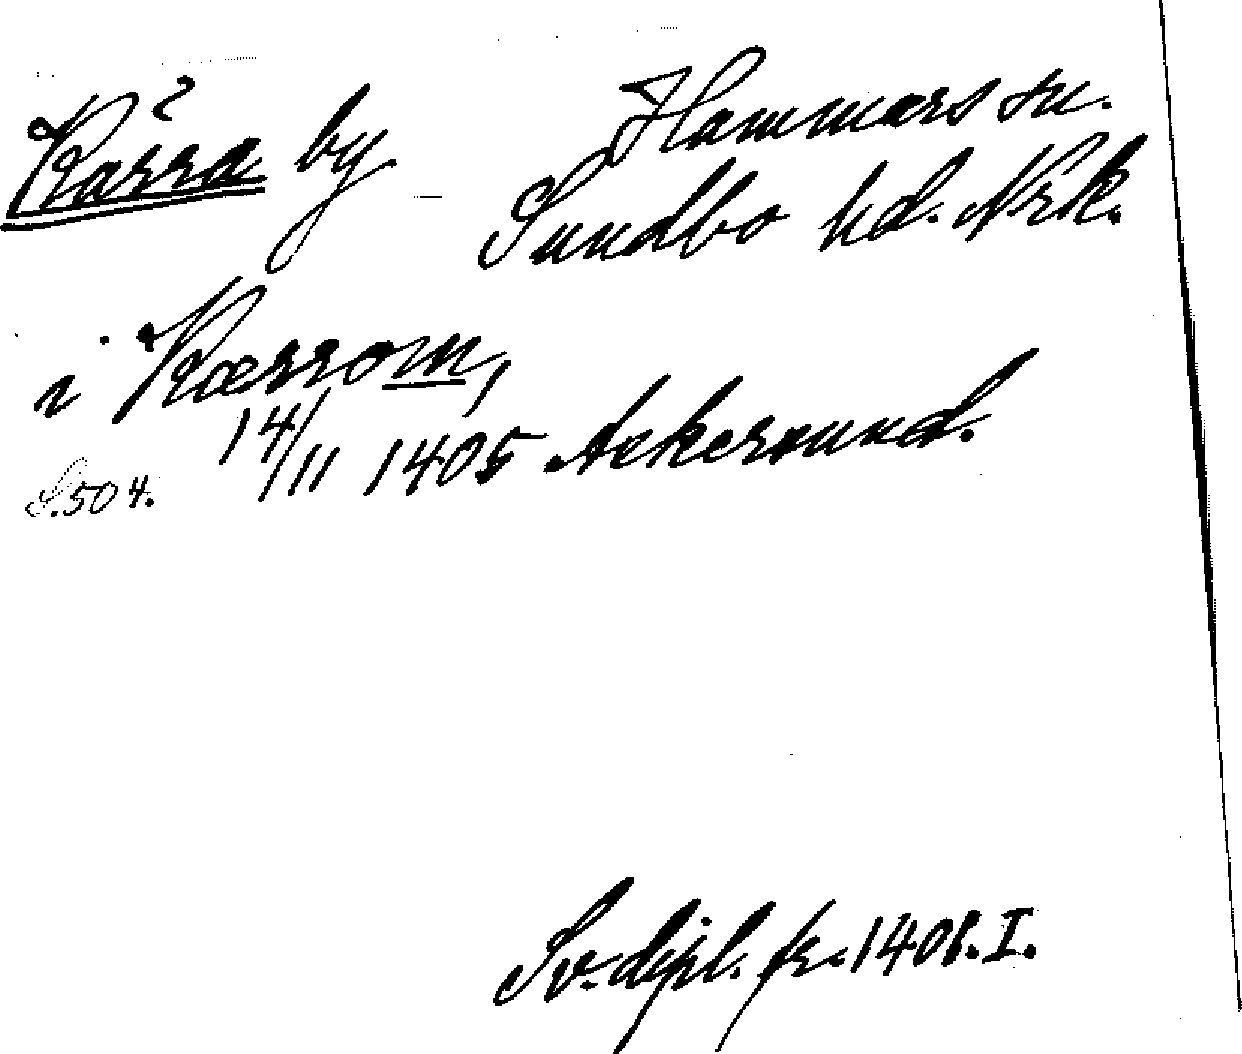 ?
Kärra by Hammars sn.
Sundbo hd. Nrk.
i Kærrom,
14/11 1405 Askersund.
S. 504.
Sv. dipl. fr. 1401. I.